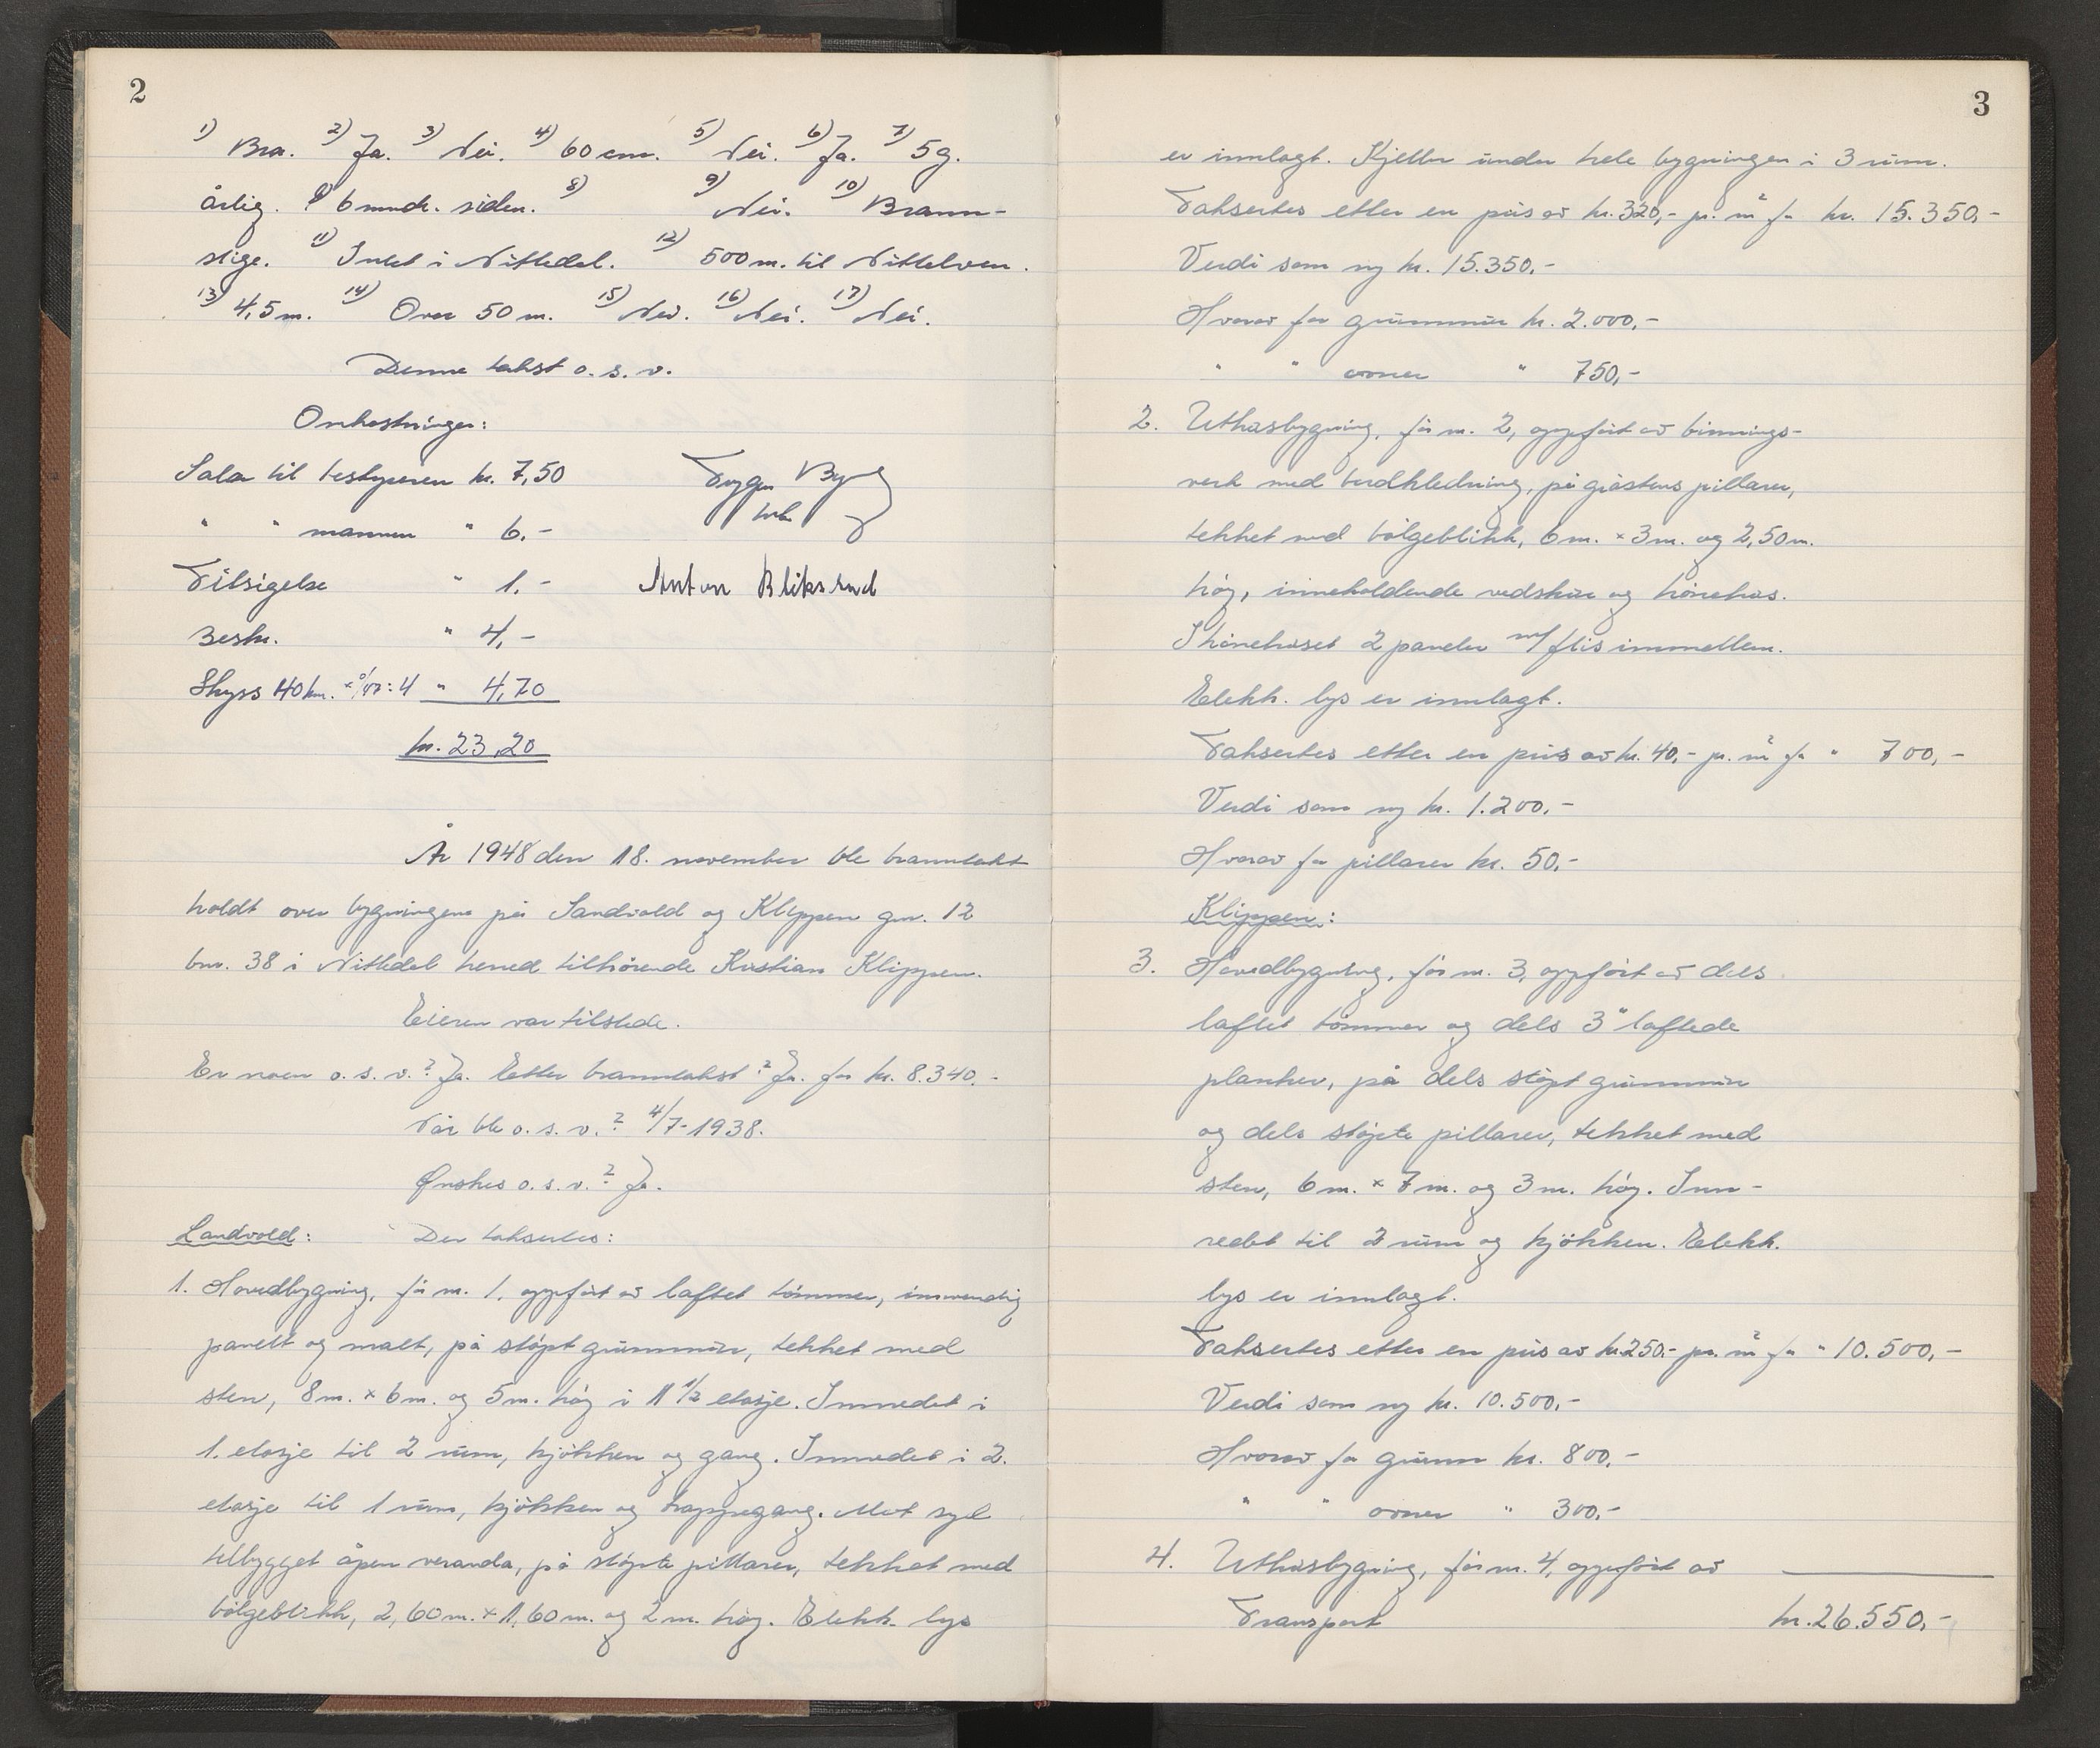 2
1) Bra. 2) Ja. 3) Nei. 4) 60 cm. 5) Nei. 6) Ja. 7) 5 g.
årlig. 6 mndr. siden. 8) 9) Nei. 10) Brann-
stige. 11) Intet i Nittedal. 12) 500 m. til Nittelven.
13) 4,5 m. 14) Over 50 m. 15) Nei. 16) Nei. 17) Nei.
Denne takst o. s. v.
Omkostninger:
Salær til bestyreren kr. 7,50
" " mannen " 6,-
Tilsigelse " 1,-
Beskr. " 4,-
Skyss 40 km. : 4 " 4,70
kr. 23,20
Trygve By
Anton Bliksrud
År 1948 den 18. november ble branntakst
holdt over bygningene på Sandvold og Klippen gnr. 12
bnr. 38 i Nittedal herred tilhörende Kristian Klippen.
Eieren var tilstede.
Er noen o. s. v.? Ja. Etter branntakst? Ja. for kr. 8.340,-
Når ble o. s. v.? 4/7-1938.
Ønskes o. s. v.? Ja.
Landvold: Der takseres:
1. Hovedbygning, för m. 1, oppfört av laftet tömmer, innvendig
panelt og malt, på stöpt grunnmur, tekket med
sten, 8 m. x 6 m. og 5 m. höy i 1 1/2 etasje. Innredet i
1. etasje til 2 rum, kjökken og gang. Innredet i 2.
etasje til 1 rum, kjökken og trappegang. Mot syd
tilbygget åpen veranda, på stöpte pillarer, tekket med
bölgeblikk, 2,60 m. x 1,60 m. og 2 m. höy. Elekk. lys
3
er innlagt. Kjeller under hele bygningen i 3 rum.
Takseres etter en pris av kr. 320,- pr. m² for kr. 15.350,-
Verdi som ny kr. 15.350,-
Hvorav for grunnmur kr. 2.000,-
" " ovner " 750,-
2. Uthusbygning, för m. 2, oppfört av binnings-
verk med bordkledning, på gråstens pillarer,
tekket med bölgeblikk, 6 m. x 3 m. og 2,50 m.
höy, inneholdende vedskur og hönehus.
I hönehuset 2 paneler m/ flis innmellem.
Elekk. lys er innlagt.
Takseres etter en pris av kr. 40,- pr. m² for " 700,-
Verdi som ny kr. 1.200,-
Hvorav for pillarer kr. 50,-
Klippen:
3. Hovedbygning, för m. 3, oppfört av dels
laftet tömmer og dels 3" laftede
planker, på dels stöpt grunnmur
og dels stöpte pillarer, tekket med
sten, 6 m. x 7 m. og 3 m. höy. Inn-
redet til 2 rum og kjökken. Elekk.
lys er innlagt.
Takseres etter en pris av kr. 250,- pr. m² for " 10.500,-
Verdi som ny kr. 10.500,-
Hvorav for grunn kr. 800,-
" " ovner " 300,-
4. Uthusbygning, för m. 4, oppfört av
Transport kr. 26.550,-